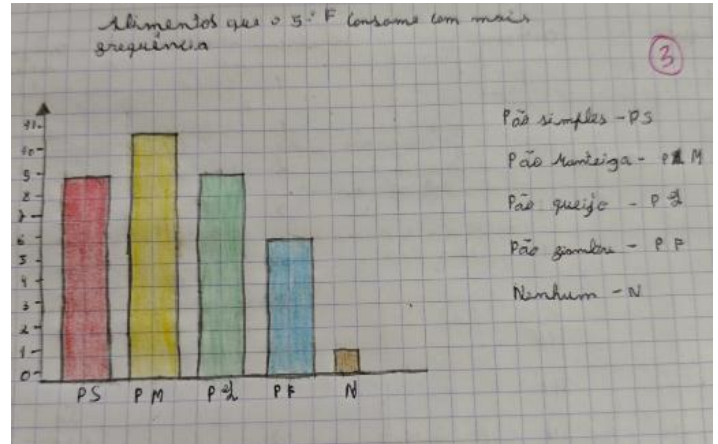 Alimentos que o 5.º F consome com mais
frequência
3
11
10
9
8
7
6
5
4
3
2
1
0
PS PM PQ PF N
Pão simples - PS
Pão manteiga - P M
Pão queijo - P Q
Pão fiambre - P F
Nenhum - N